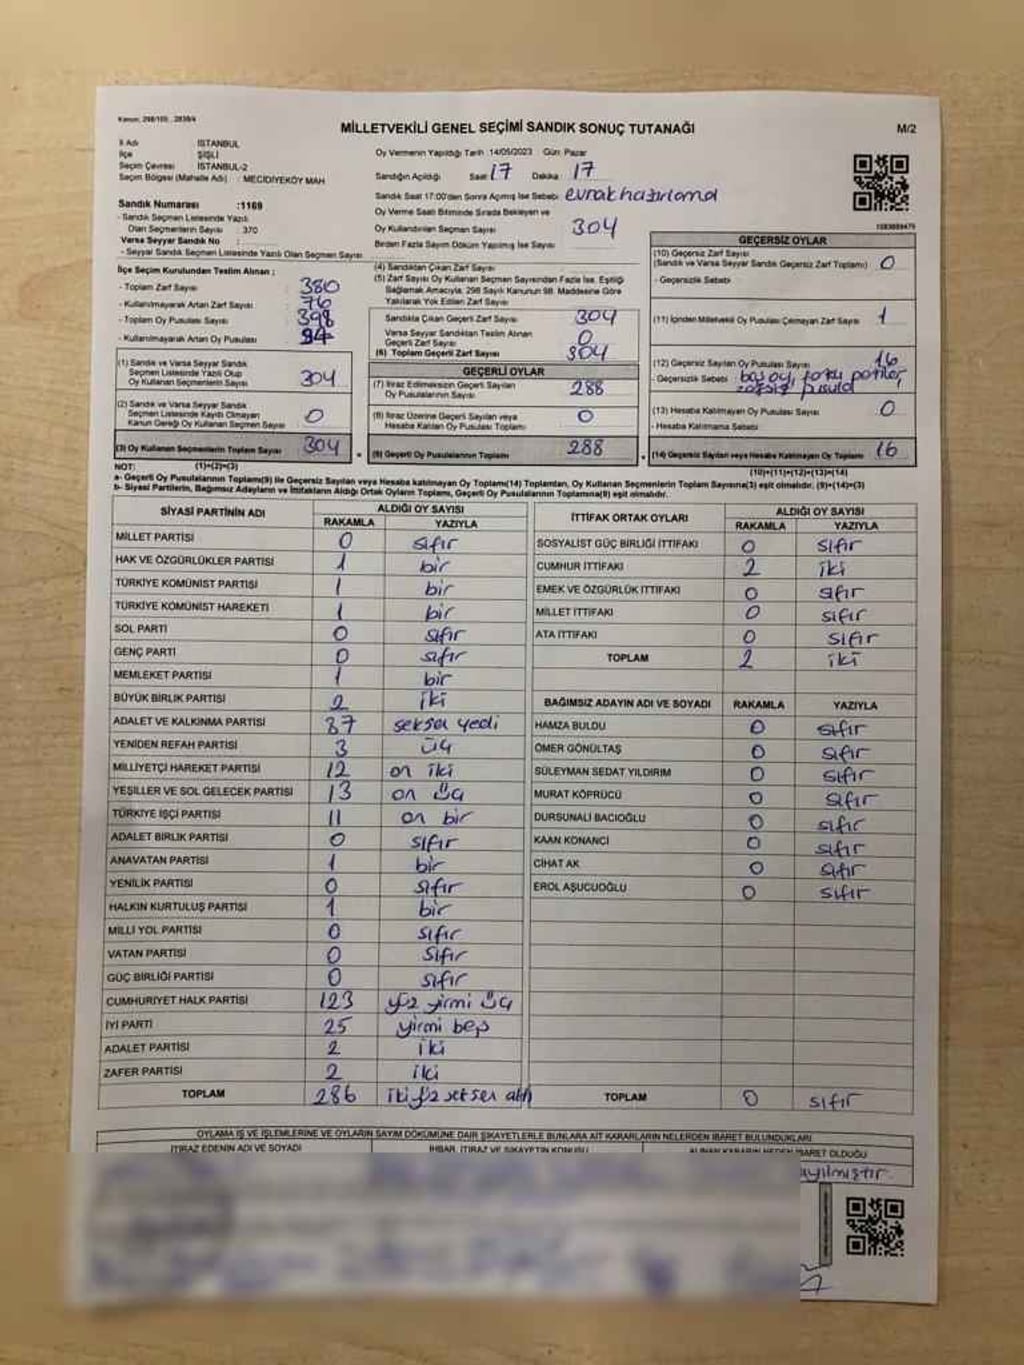 Kanun: 298/105 , 2839/4
MİLLETVEKİLİ GENEL SEÇİMİ SANDIK SONUÇ TUTANAĞI
M/2
İl Adı : İSTANBUL
İlçe : ŞİŞLİ
Seçim Çevresi : İSTANBUL-2
Seçim Bölgesi (Mahalle Adı) : MECİDİYEKÖY MAH
Sandık Numarası :1169
- Sandık Seçmen Listesinde Yazılı
Olan Seçmenlerin Sayısı : 370
Varsa Seyyar Sandık No :
- Seyyar Sandık Seçmen Listesinde Yazılı Olan Seçmen Sayısı :
İlçe Seçim Kurulundan Teslim Alınan ;
- Toplam Zarf Sayısı : 380
- Kullanılmayarak Artan Zarf Sayısı : 76
- Toplam Oy Pusulası Sayısı : 398
- Kullanılmayarak Artan Oy Pusulası : 94
(1) Sandık ve Varsa Seyyar Sandık
Seçmen Listesinde Yazılı Olup
Oy Kullanan Seçmenlerin Sayısı 304
(2) Sandık ve Varsa Seyyar Sandık
Seçmen Listesinde Kayıtlı Olmayan
Kanun Gereği Oy Kullanan Seçmen Sayısı 0
(3) Oy Kullanan Seçmenlerin Toplam Sayısı 304
(1)+(2)=(3)
Oy Vermenin Yapıldığı Tarih :14/05/2023 Gün: Pazar
Sandığın Açıldığı Saat : 17 Dakika : 17
Sandık Saat 17:00'den Sonra Açılmış İse Sebebi : evrak hazırlama
Oy Verme Saati Bitiminde Sırada Bekleyen ve
Oy Kullandırılan Seçmen Sayısı : 304
Birden Fazla Sayım Döküm Yapılmış İse Sayısı :
(4) Sandıktan Çıkan Zarf Sayısı :
(5) Zarf Sayısı Oy Kullanan Seçmen Sayısından Fazla İse, Eşitliği
Sağlamak Amacıyla; 298 Sayılı Kanunun 98. Maddesine Göre
Yakılarak Yok Edilen Zarf Sayısı :
Sandıkta Çıkan Geçerli Zarf Sayısı 304
Varsa Seyyar Sandıktan Teslim Alınan
Geçerli Zarf Sayısı 0
(6) Toplam Geçerli Zarf Sayısı 304
GEÇERLİ OYLAR
(7) İtiraz Edilmeksizin Geçerli Sayılan
Oy Pusulalarının Sayısı : 288
(8) İtiraz Üzerine Geçerli Sayılan veya
Hesaba Katılan Oy Pusulası Toplamı : 0
(9) Geçerli Oy Pusulalarının Toplamı 288
GEÇERSİZ OYLAR
(10) Geçersiz Zarf Sayısı
(Sandık ve Varsa Seyyar Sandık Geçersiz Zarf Toplamı) : 0
- Geçersizlik Sebebi :
(11) İçinden Milletvekili Oy Pusulası Çıkmayan Zarf Sayısı : 1
(12) Geçersiz Sayılan Oy Pusulası Sayısı : 16
- Geçersizlik Sebebi : boş oy,
(13) Hesaba Katılmayan Oy Pusulası Sayısı : 0
- Hesaba Katılmama Sebebi :
(14) Geçersiz Sayılan veya Hesaba Katılmayan Oy Toplamı 16
(10)+(11)+(12)+(13)=(14)
NOT:
a- Geçerli Oy Pusulalarının Toplamı(9) ile Geçersiz Sayılan veya Hesaba katılmayan Oy Toplamı(14) Toplamları, Oy Kullanan Seçmenlerin Toplam Sayısına(3) eşit olmalıdır. (9)+(14)=(3)
b- Siyasi Partilerin, Bağımsız Adayların ve İttifakların Aldığı Ortak Oyların Toplamı, Geçerli Oy Pusulalarının Toplamına(9) eşit olmalıdır.
SİYASİ PARTİNİN ADI ALDIĞI OY SAYISI
RAKAMLA YAZIYLA
MİLLET PARTİSİ 0 sıfır
HAK VE ÖZGÜRLÜKLER PARTİSİ 1 bir
TÜRKİYE KOMÜNİST PARTİSİ 1 bir
TÜRKİYE KOMÜNİST HAREKETİ 1 bir
SOL PARTİ 0 sıfır
GENÇ PARTİ 0 sıfır
MEMLEKET PARTİSİ 1 bir
BÜYÜK BİRLİK PARTİSİ 2 iki
ADALET VE KALKINMA PARTİSİ 87 seksen yedi
YENİDEN REFAH PARTİSİ 3 üç
MİLLİYETÇİ HAREKET PARTİSİ 12 on iki
YEŞİLLER VE SOL GELECEK PARTİSİ 13 on üç
TÜRKİYE İŞÇİ PARTİSİ 11 on bir
ADALET BİRLİK PARTİSİ 0 sıfır
ANAVATAN PARTİSİ 1 bir
YENİLİK PARTİSİ 0 sıfır
HALKIN KURTULUŞ PARTİSİ 1 bir
MİLLİ YOL PARTİSİ 0 sıfır
VATAN PARTİSİ 0 sıfır
GÜÇ BİRLİĞİ PARTİSİ 0 sıfır
CUMHURİYET HALK PARTİSİ 123 yüz yirmi üç
İYİ PARTİ 25 yirmi beş
ADALET PARTİSİ 2 iki
ZAFER PARTİSİ 2 iki
TOPLAM 286 iki yüz seksen altı
İTTİFAK ORTAK OYLARI ALDIĞI OY SAYISI
RAKAMLA YAZIYLA
SOSYALİST GÜÇ BİRLİĞİ İTTİFAKI 0 sıfır
CUMHUR İTTİFAKI 2 iki
EMEK VE ÖZGÜRLÜK İTTİFAKI 0 sıfır
MİLLET İTTİFAKI 0 sıfır
ATA İTTİFAKI 0 sıfır
TOPLAM 2 iki
BAĞIMSIZ ADAYIN ADI VE SOYADI RAKAMLA YAZIYLA
HAMZA BULDU 0 sıfır
ÖMER GÖNÜLTAŞ 0 sıfır
SÜLEYMAN SEDAT YILDIRIM 0 sıfır
MURAT KÖPRÜCÜ 0 sıfır
DURSUNALİ BACIOĞLU 0 sıfır
KAAN KONANCI 0 sıfır
CİHAT AK 0 sıfır
EROL AŞUCUOĞLU 0 sıfır
TOPLAM 0 sıfır
OYLAMA İŞ VE İŞLEMLERİNE VE OYLARIN SAYIM DÖKÜMÜNE DAİR ŞİKAYETLERLE BUNLARA AİT KARARLARIN NELERDEN İBARET BULUNDUKLARI
İTİRAZ EDENİN ADI VE SOYADI İHBAR, İTİRAZ VE ŞİKAYETİN KONUSU ALINAN KARARIN NEDEN İBARET OLDUĞU